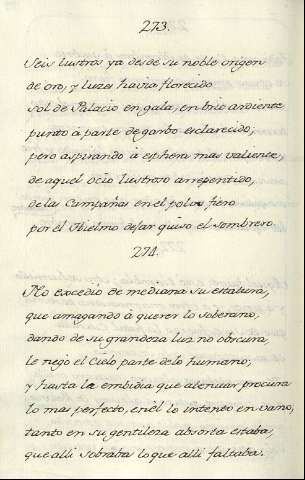 273.
Seis lustros ya desde su noble origen
de oro, y luzes havia florecido
Sol de Palacio en gala, en brio ardiente
punto à parte de garbo esclarecido,
pero aspirando à esphera mas valiente,
de aquel Ocio lustroso arrepentido,
de las Campañas en el polos fiero
por el Hielmo dejar quiso el sombrero.
274.
No excedio de mediana su estatura,
que amagando à querer lo soberano,
dando de su grandeza luz no obscura,
le negò el Cielo parte de lo humano;
y hasta la embidia que atenuar procura
lo mas perfecto, en èl lo intentò en vano,
tanto en su gentileza absorta estaba,
que alli sobraba lo que alli faltaba.